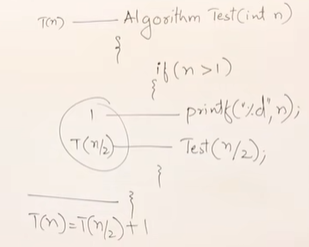 T(n) — Algorithm Test(int n)
{
if(n>1)
{
1 — printf("%d",n);
T(n/2) — Test(n/2);
}
}
T(n)=T(n/2)+1